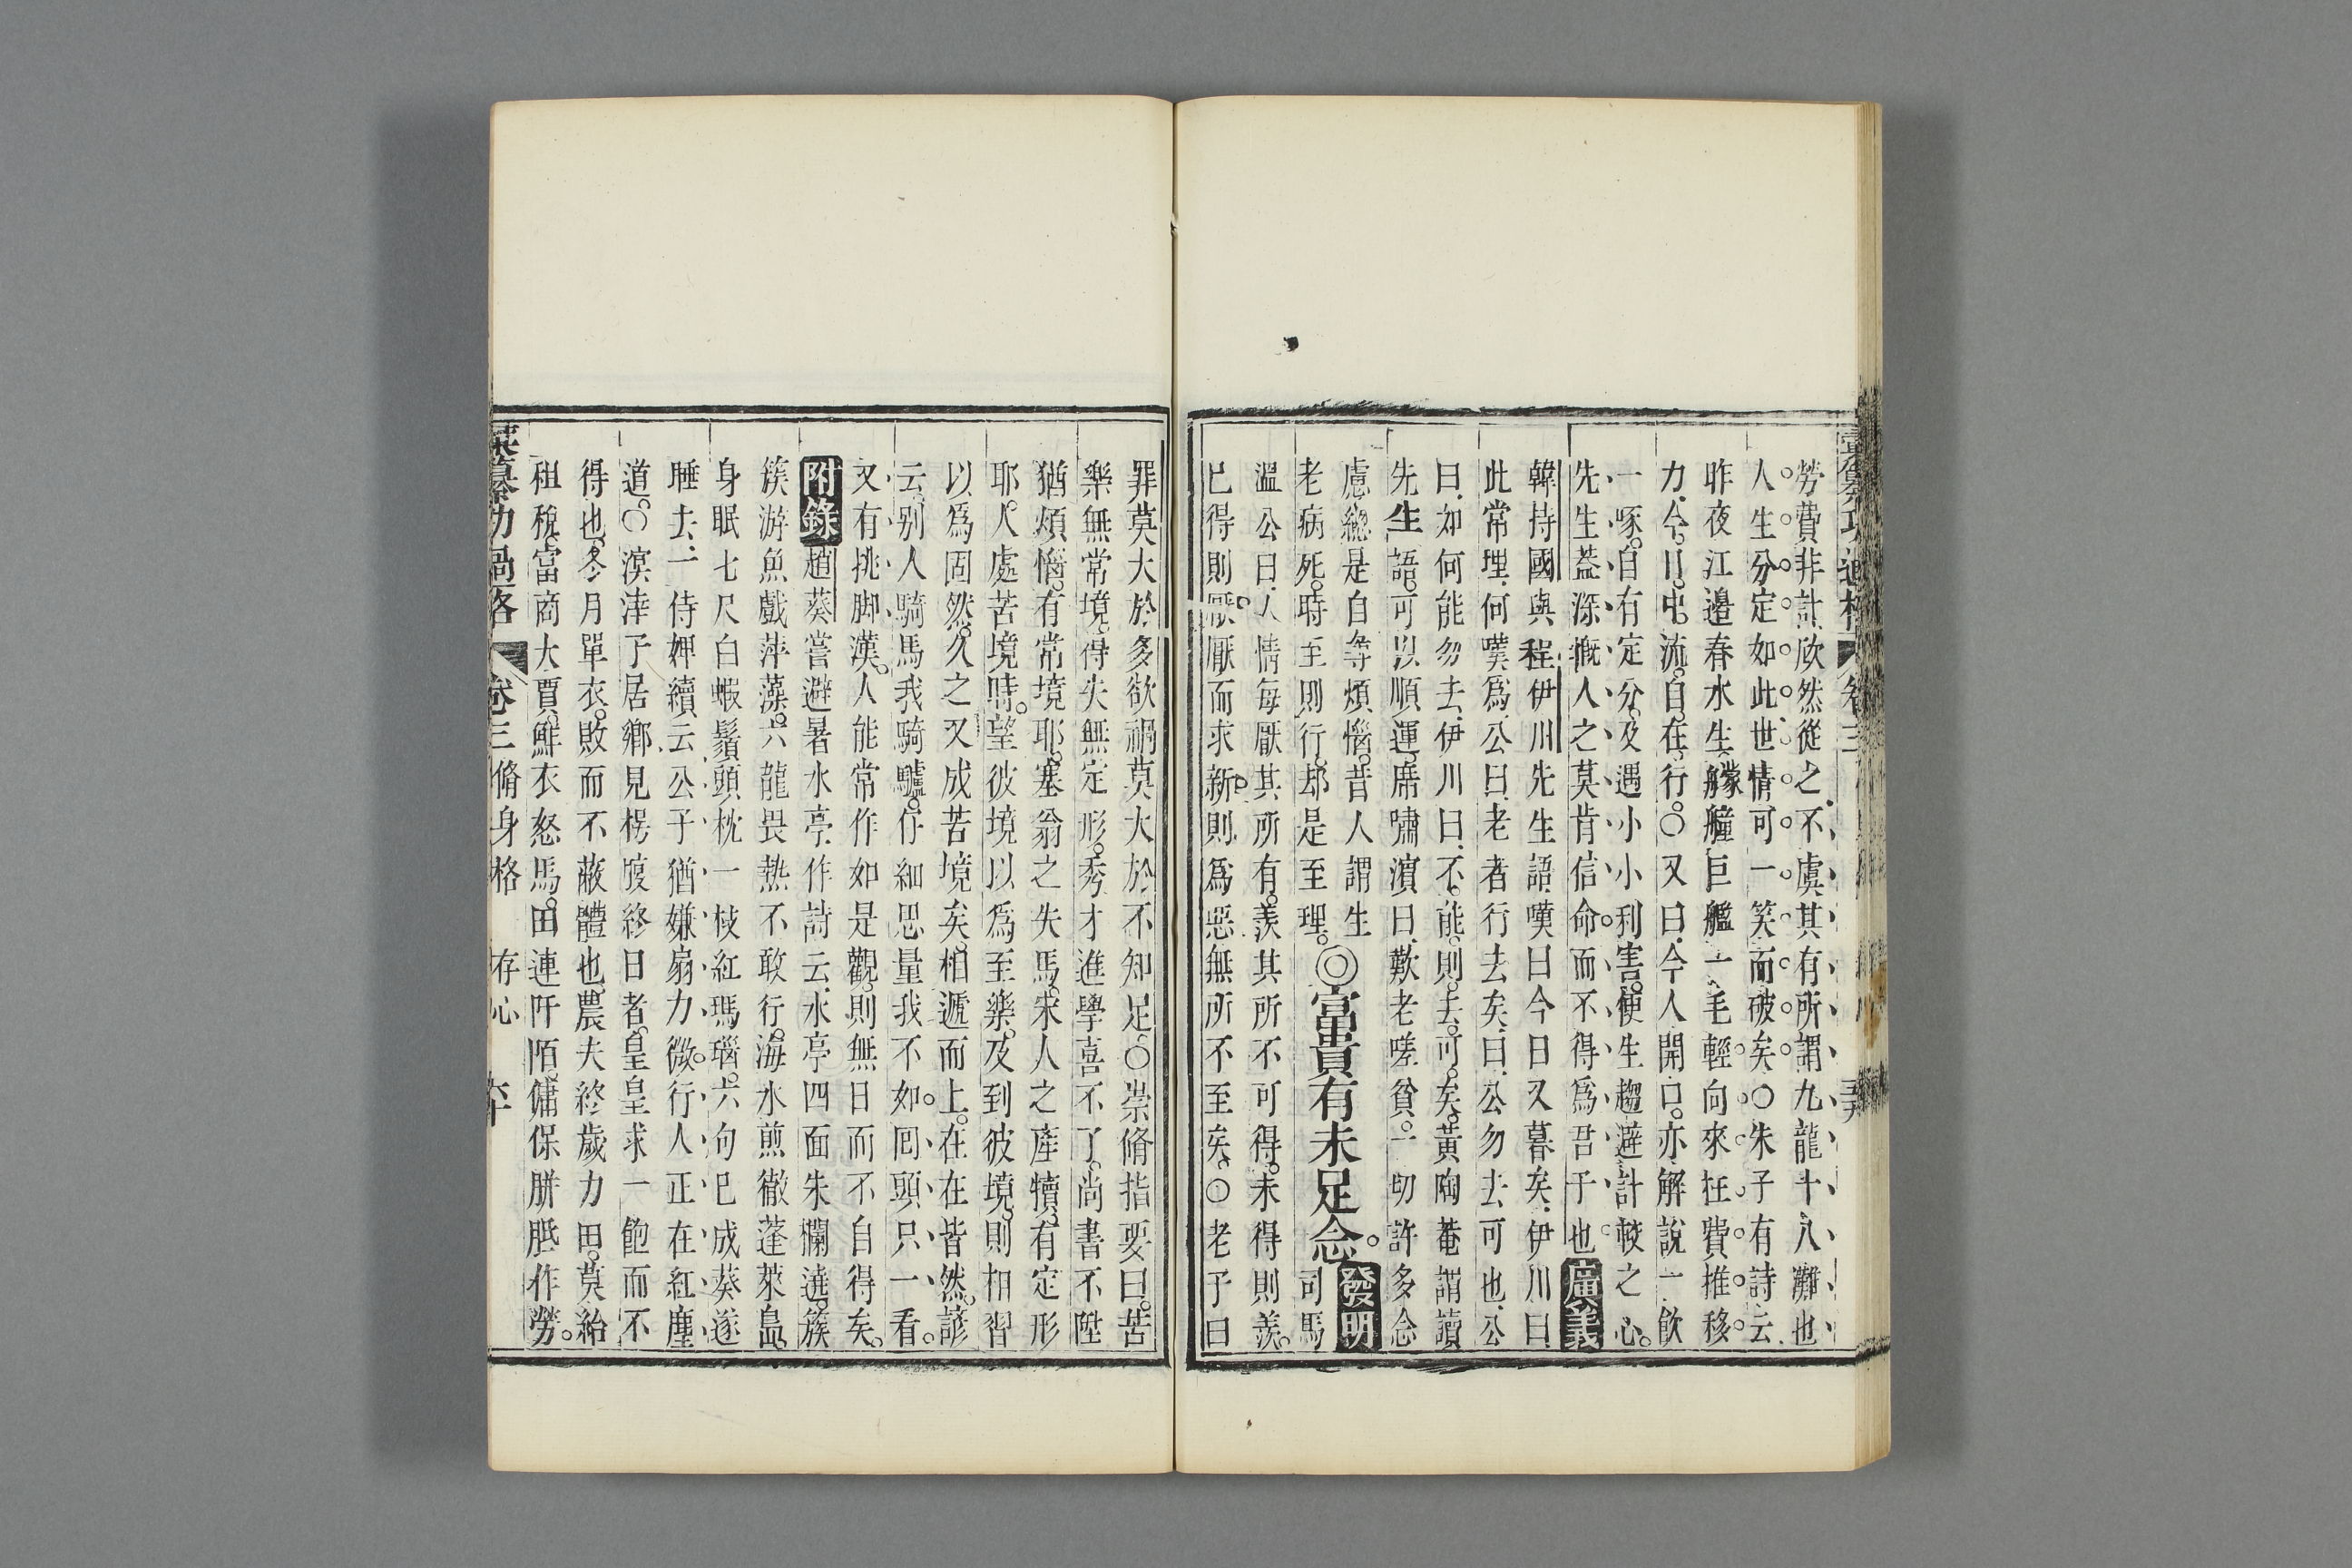 勞費非計欣然從之不虞其有所謂九龍十八灘也
人生分定如此世情可一笑而破矣○朱子有詩云
昨夜江邊春水生艨艟巨艦一毛輕向來枉費推移
力今日中流自在行○又曰今人開口亦解說一飲
一啄自有定分及遇小小利害便生趨避計較之心
先生蓋深慨人之莫肯信命而不得爲君子也廣義
韓持國與程伊川先生語嘆曰今日又暮矣伊川曰
此常理何嘆爲公曰老者行去矣曰公勿去可也公
曰如何能勿去伊川曰不能則去可矣黃陶菴謂讀
先生語可以順運席嘯濱曰歎老嗟貧一切許多念
慮總是自尋煩惱昔人謂生
老病死時至則行却是至理◎富貴有未足念發明司馬
溫公曰人情每厭其所有羨其所不可得未得則羨
已得則厭厭而求新則爲惡無所不至矣○老子曰
罪莫大於多欲禍莫大於不知足○崇脩指要曰苦
樂無常境得失無定形秀才進學喜不了尚書不陞
猶煩惱有常境耶塞翁之失馬宋人之產犢有定形
耶人處苦境時望彼境以爲至樂及到彼境則相習
以爲固然久之又成苦境矣相遞而上在在皆然諺
云别人騎馬我騎驢仔細思量我不如囘頭只一看
又有挑脚漢人能常作如是觀則無日而不自得矣
附錄趙葵嘗避暑水亭作詩云水亭四面朱欄遶簇
簇游魚戲萍藻六龍畏熱不敢行海水煎徹蓬萊島
身眠七尺白蝦鬚頭枕一枝紅瑪瑙六句已成葵遂
睡去一侍婢續云公子猶嫌扇力微行人正在紅塵
道○溟涬子居鄉見楞㢠終日者皇皇求一飽而不
得也冬月單衣敗而不蔽體也農夫終歲力田莫給
租稅富商大賈鮮衣怒馬田連阡陌傭保胼胝作勞
彙纂功過格 卷三 脩身格 存心 六十